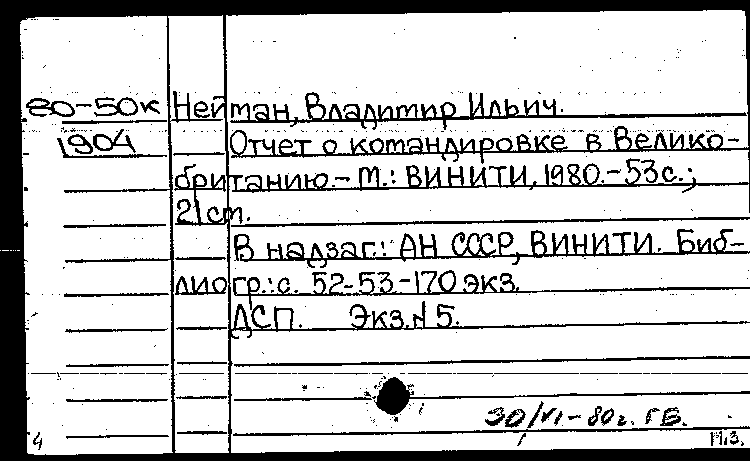 80-50к Нейман, Владимир Ильич.
1904 Отчет о командировке в Велико-
британию.- М.: ВИНИТИ, 1980.-53с.;
21 см.
В надзаг.: АН СССР, ВИНИТИ. Биб-
лиогр.: с. 52-53.-170 экз.
ДСП. Экз.N 5.
30/VI-80г. ГБ.
4 М.З.